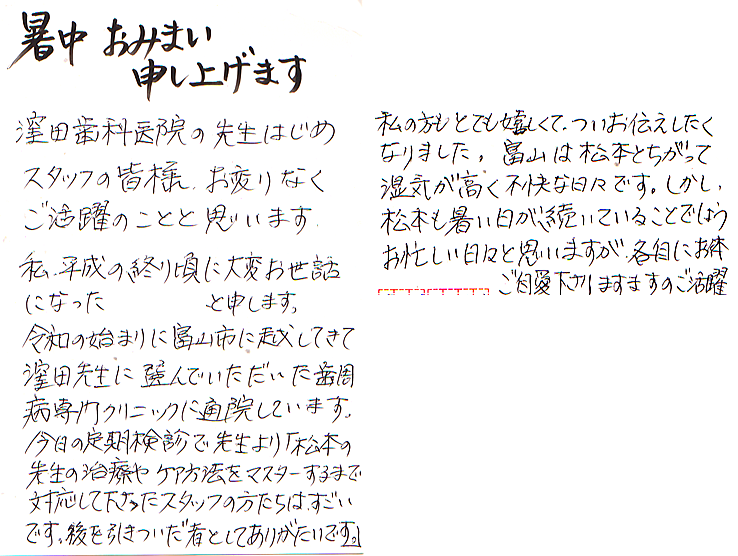 暑中 おみまい
申し上げます
窪田歯科医院の先生はじめ
スタッフの皆様、お変りなく
ご活躍のことと思います。
私、平成の終り頃に大変お世話
になった と申します。
令和の始まりに富山市に越してきて
窪田先生に選んでいただいた歯周
病専門クリニックに通院しています。
今日の定期検診で先生より「松本の
先生の治療や ケア方法をマスターするまで
対応して下さったスタッフの方たちは、すごい
です。後を引きついだ者としてありがたいです。」
私の方もとても嬉しくて、ついお伝えしたく
なりました。富山は松本とちがって
湿気が高く不快な日々です。しかし、
松本も暑い日が続いていることでしょう
お忙しい日々と思いますが、各自にお体
ご自愛下さりますますのご活躍